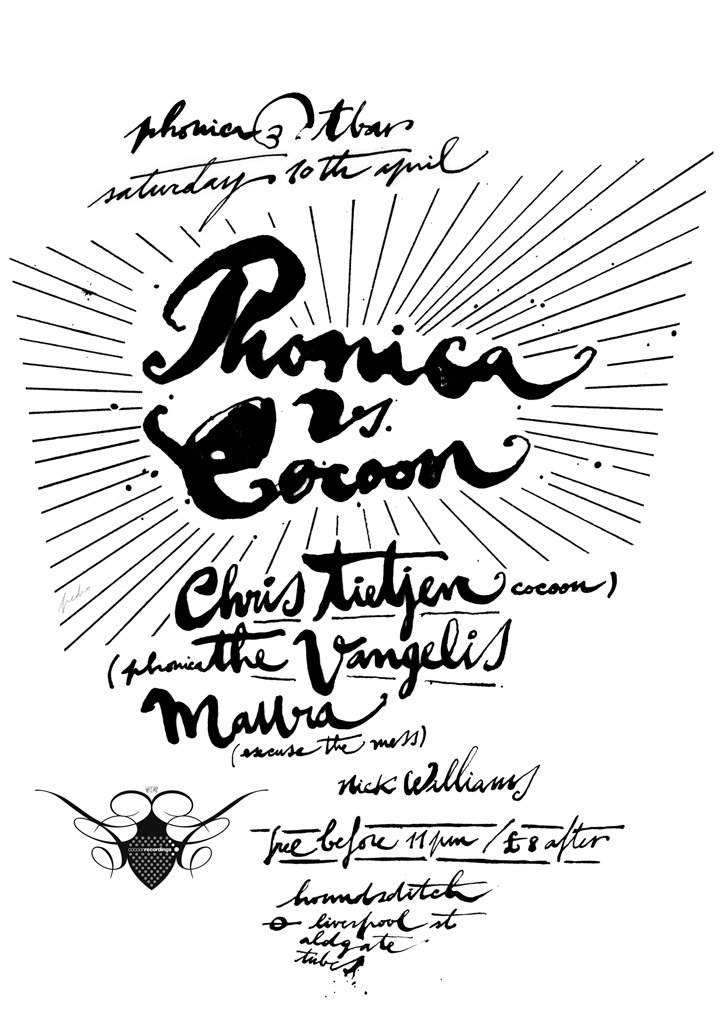 phonica @ tbar
saturday 10th april
Phonica
vs.
Cocoon
pedro
Chris Tietjen (cocoon)
(phonica) the Vangelis
Maura
(excuse the mess)
nick Williams
free before 11pm / £8 after
houndsditch
liverpool st
aldgate
tubes
cocoonrecordings